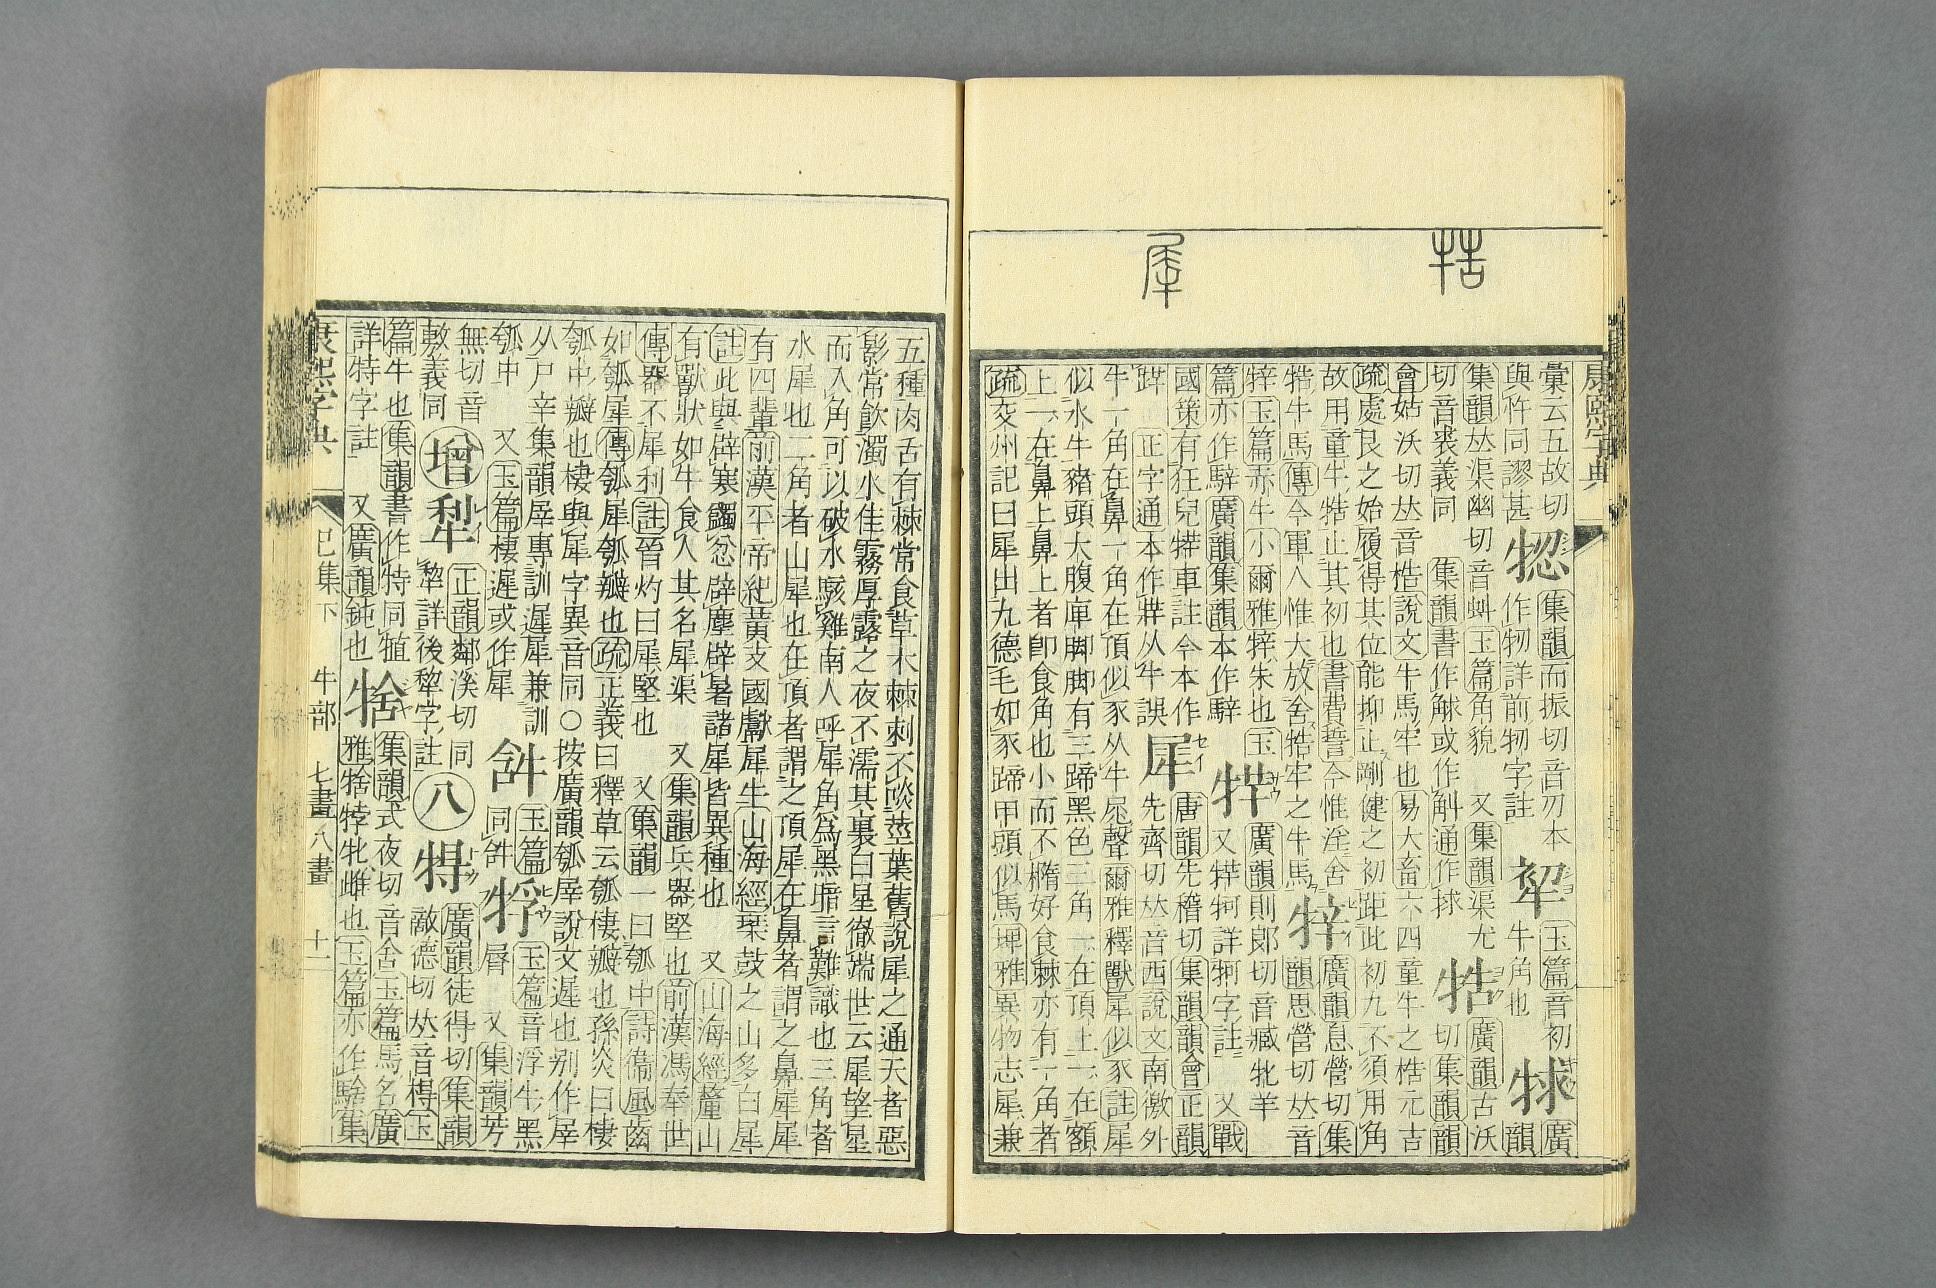 牿
犀
康熙字典
彙云五故切 集韻而振切音刃本 玉篇音初 廣
與仵同謬甚 作牣詳前牣字註 牛角也 韻
集韻𠀤渠幽切音虯玉篇角貌 又集韻渠尤 牿 廣韻古沃
切音裘義同 集韻書作觓或作斛通作捄 切集韻韻
會姑沃切𠀤音梏說文牛馬牢也易大畜六四童牛之梏元吉
疏處艮之始履得其位能抑止剛健之初距此初九不須用角
故用童牛牿止其初也書費誓今惟淫舍 廣韻息營切集
牿牛馬傳今軍人惟大放舍牿牢之牛馬 韻思營切𠀤音
玉篇赤牛小爾雅 朱也玉 廣韻則郞切音臧牝羊
篇亦作騂廣韻集韻本作騂 又 牁詳牁字註 又戰
國策有狂兕 車註今本作 犀 唐韻先稽切集韻韻會正韻
正字通本作牂从牛誤 先齊切𠀤音西說文南徼外
牛一角在鼻一角在頂似豕从牛尾聲爾雅釋獸犀似豕註犀
似水牛豬頭大腹庳脚脚有三蹄黑色三角一在頂上一在額
上一在鼻上鼻上者卽食角也小而不橢好食棘亦有一角者
疏交州記曰犀出九德毛如豕蹄甲頭似馬埤雅異物志犀兼
五種肉舌有棘常食草木棘刺不啖莖葉舊說犀之通天者惡
影常飮濁水佳霧厚露之夜不濡其裏曰星徹端世云犀望星
而入角可以破水駭雞南人呼犀角爲黑暗言難識也三角者
水犀也二角者山犀也在頂者謂之頂犀在鼻者謂之鼻犀犀
有四輩前漢平帝紀黃支國獻犀牛山海經琴鼓之山多白犀
註此與辟寒蠲忿辟塵辟暑諸犀皆異種也 又山海經釐山
有獸狀如牛食人其名犀渠 又集韻兵器堅也前漢馮奉世
傳器不犀利註晉灼曰犀堅也 又集韻一曰瓠中詩衞風齒
如瓠犀傳瓠犀瓠瓣也疏正義曰釋草云瓠棲瓣也孫炎曰棲
瓠中瓣也棲與犀字異音同○按廣韻瓠㞓說文遲也別作㞓
从尸辛集韻㞓專訓遲犀兼訓 玉篇 玉篇音浮牛黑
瓠中 又玉篇棲遲或作犀 同 脣 又集韻芳
無切音 增 犁 正韻鄰溪切同 八 㹂 廣韻徒得切集韻
敷義同 犂詳後犂字註 敵德切𠀤音㯖玉
篇牛也集韻書作特同犆 㹀 集韻式夜切音舍玉篇馬名廣
詳特字註 又廣韻鈍也 雅 犗㹀牝雌也玉篇亦作騇集
康熙字典 巳集下 牛部 七畫 八畫 十一